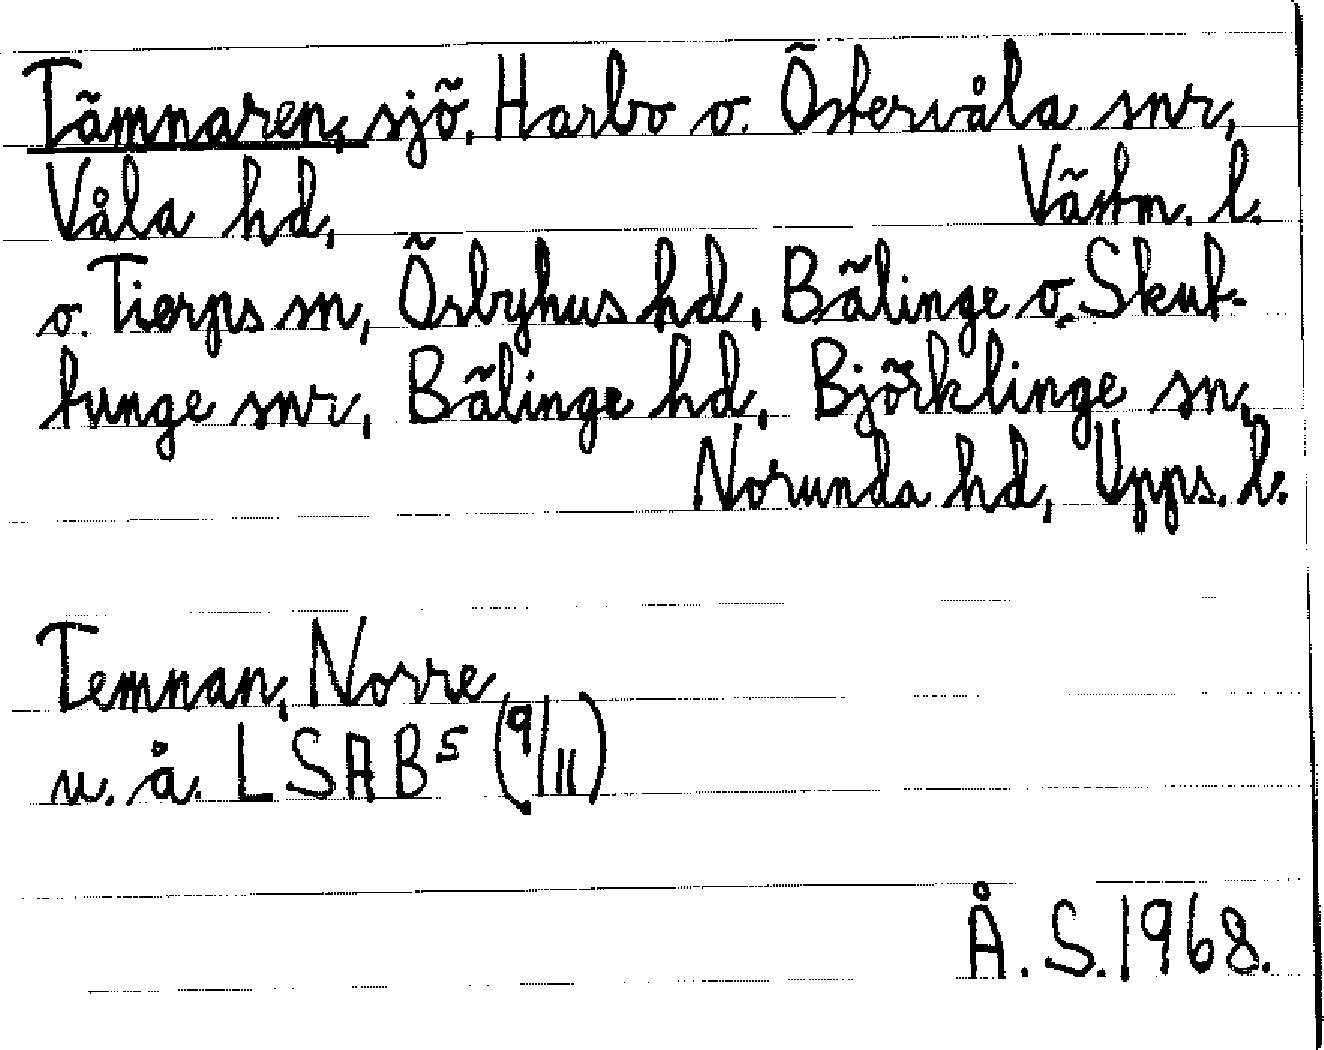 Tämnaren, sjö, Harbo o. Östervåla snr,
Våla hd, Västm. l.
o. Tierps sn, Örbyhus hd, Bälinge o. Skut-
tunge snr, Bälinge hd, Björklinge sn,
Norunda hd, Upps. l.
Temnan, Norre
u. å. LSAB⁵ (9/11)
Å. S. 1968.